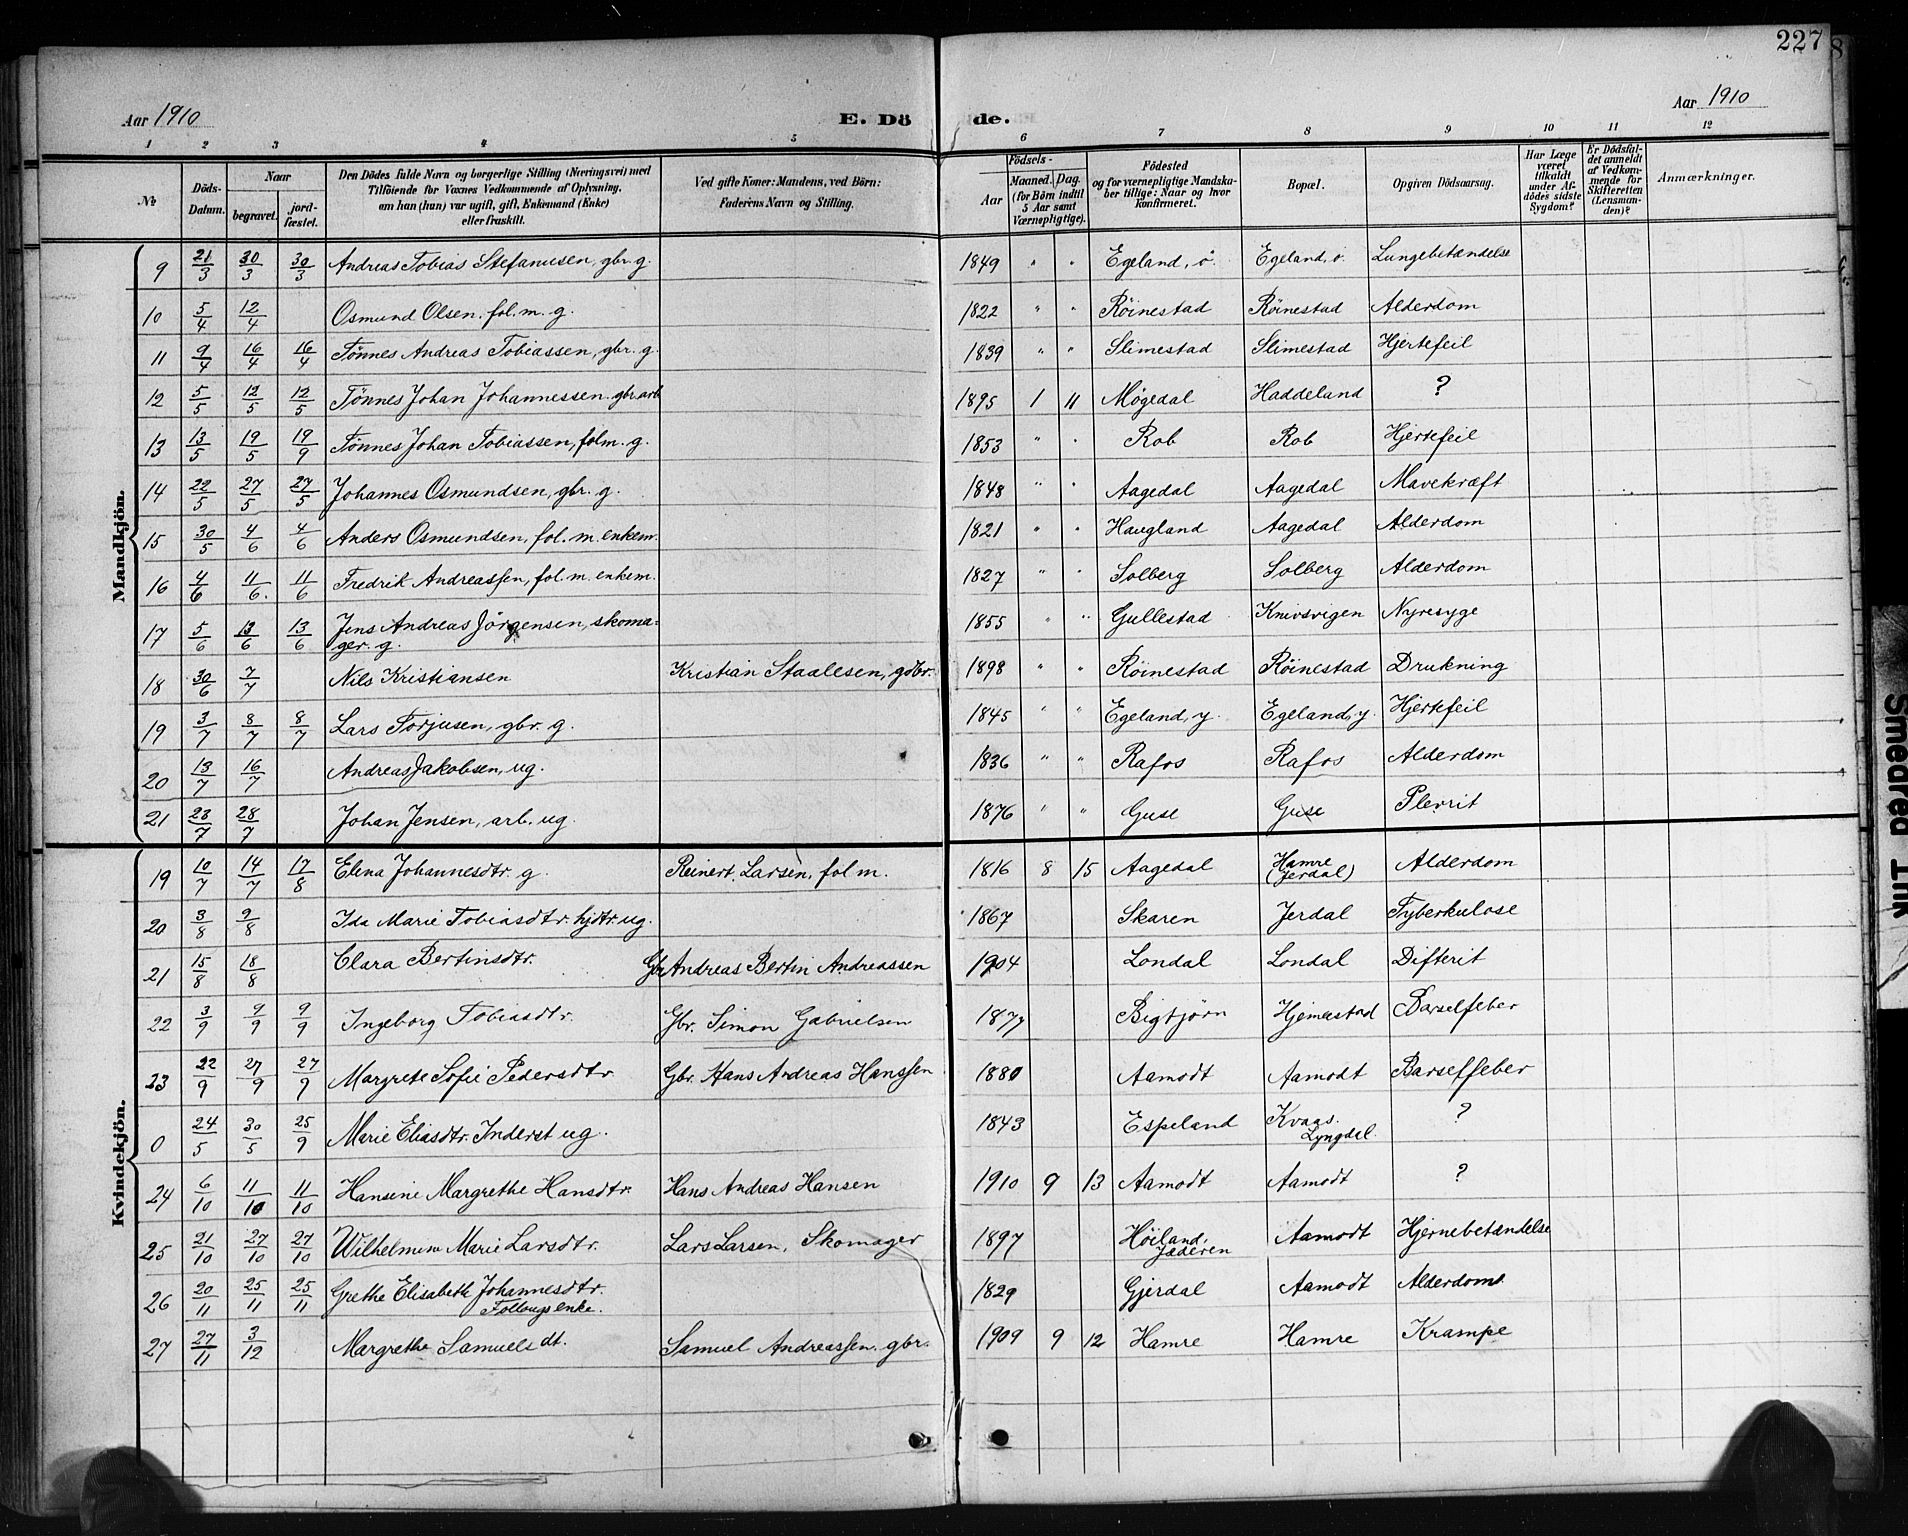 227
8
Aar 1910
E. Dö
de.
Aar 1910
1 2 3 4 5 6 7 8 9 10 11 12
№
Döds-Datum.
Naar
begravet.
jord-fæstet.
Den Dödes fulde Navn og borgerlige Stilling (Næringsvei) med
Tilföiende for Voxnes Vedkommende af Oplysning,
om han (hun) var ugift, gift, Enkemand (Enke)
eller fraskilt.
Ved gifte Koner: Mandens, ved Börn:
Faderens Navn og Stilling.
Födsels-
Aar
Maaned. Dag.
(for Börn indtil
5 Aar samt
Værnepligtige).
Födested
og for værnepligtige Mandska-
ber tillige: Naar og hvor
konfirmeret.
Bopæl.
Opgiven Dödsaarsag.
Har Læge
været
tilkaldt
under Af-
dödes sidste
Sygdom?
Er Dödsfal-
det anmeldt
af Vedkom-
mende for
Skifteretten
(Lensman-
den)?
Anmærkninger.
Mandkjön.
9 21/3 30/3 30/3 Andreas Tobias Stefanusen, gbr. g. 1849 " " Egeland, ö. Egeland, ö. Lungebetændelse
10 5/4 12/4 Osmund Olsen. fol. m. g. 1822 " " Röinestad Röinestad Alderdom
11 9/4 16/4 16/4 Tønnes Andreas Tobiassen, gbr. g. 1839 " " Slimestad Slimestad Hjertefeil
12 5/5 12/5 12/5 Tønnes Johan Johannessen gbr. arb 1895 1 11 Møgedal Haddeland ?
13 13/5 19/5 19/9 Tønnes Johan Tobiassen, folm. g. 1853 " " Rob Rob Hjertefeil
14 22/5 27/5 27/5 Johannes Osmundsen, gbr. g. 1848 " " Aagedal Aagedal Mavekræft
15 30/5 4/6 4/6 Anders Osmundsen, fol. m. enkem. 1821 " " Haugland Aagedal Alderdom
16 4/6 11/6. 11/6 Fredrik Andreassen, fol. m. enkem. 1827 " " Solberg Solberg Alderdom
17 5/6 13/6 13/6 Jens Andreas Jörgensen, skoma=
ger. g. 1855 " " Gullestad Knivsvigen Nyresyge
18 30/6 7/7 Nils Kristiansen Kristian Staalesen, gdbr. 1898 " " Röinestad Röinestad Drukning
19 3/7 8/7 8/7 Lars Torjusen, gbr. g. 1845 " " Egeland, y. Egeland, y. Hjertefeil
20 13/7 16/7 Andreas Jakobsen, ug. 1836 " " Rafos Rafos Alderdom
21 23/7 28/7 Johan Jensen, arb. ug. 1876 " " Guse Guse Plevrit
Kvindekjön.
19 10/7 14/7 17/8 Elena Johannesdtr. g. Reinert Larsen, fol m. 1816 8 15 Aagedal Hamre
(Jerdal) Alderdom
20 3/8 9/8 Ida Marie Tobiasdtr. hjdtr. ug. 1867 Skaren Jerdal Tyberkulose
21 15/8 18/8 Clara Bertinsdtr. Gbr Andreas Bertin Andreassen 1904 Londal Londal Difterit
22 3/9 9/9 9/9 Ingeborg Tobiasdtr. Gbr. Simon Gabrielsen 1877 Bigtjörn Hjemestad Barselfeber
23 22/9 27/9 27/9 Margrete Sofie Pedersdtr Gbr. Hans Andreas Hanssen 1880 Aamodt Aamodt Barselfeber
0 24/5 30/5 25/9 Marie Eliasdtr. Inderst ug. 1843 Espeland Kvaas.
Lyngdal. ?
24 6/10 11/10 11/10 Hansine Margrethe Hansdtr. Hans Andreas Hansen 1910 9 13 Aamodt Aamodt ?
25 21/10 27/10 27/10 Wilhelmine Marie Larsdtr. Lars Larsen, Skomager 1897 Höiland,
Jæderen Aamodt Hjernebetændelse
26 20/11 25/11 25/11 Grethe Elisabeth Johannesdtr.
enke. 1829 Gjerdal Aamodt Alderdoms
27 27/11 3/12 Margrethe Samuels dt. Samuel Andreassen. gbr. 1909 9 12 Hamre Hamre Krampe
Smeared Ink